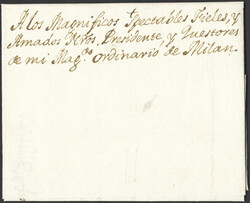 A los Magnificos Spectables Fieles, y
Amados Nros, Presidente, y Questores
de mi Mag.º Ordinario de Milan